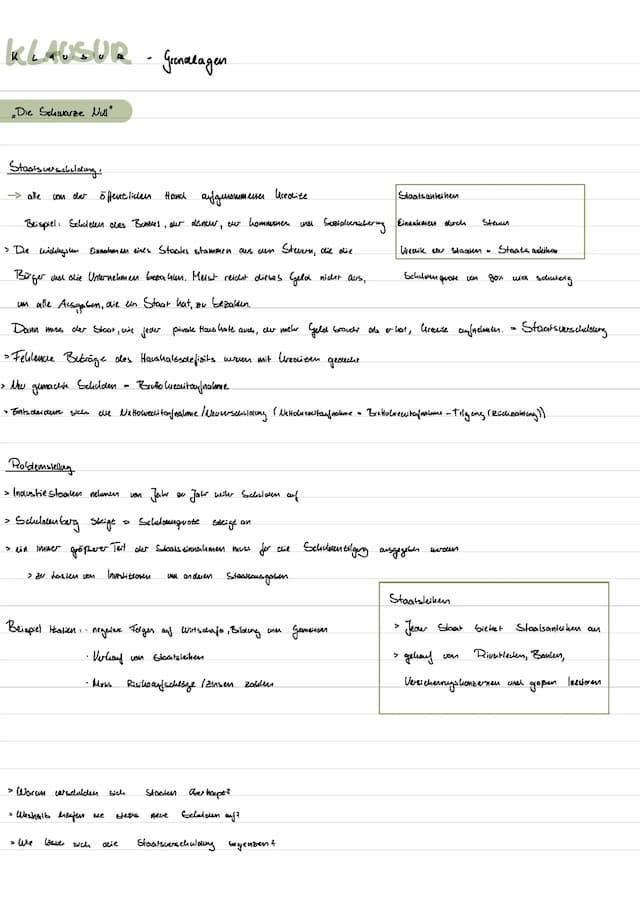 KLAUSUR - Grundlagen
KLAUSUR
„Die Schwarze Null"
Staatsverschuldung:
→ alle von der öffentlichen Hand aufgenommenen Kredite
Beispiel: Schulden des Bundes, der Länder, der Kommunen und Sozialversicherung
> Die wichtigsten Einnahmen eines Staates stammen aus den Steuern, die die
Bürger und die Unternehmen bezahlen. Meist reicht dieses Geld nicht aus,
um alle Ausgaben, die ein Staat hat, zu bezahlen.
Staatsanleihen
Einnahmen durch Steuern
Kredite der Staaten = Staatsanleihen
Schuldenquote von 80%
Dann muss der Staat, wie jeder private Haushalt auch, der mehr Geld braucht als er hat, Kredite aufnehmen. = Staatsverschuldung
> Fehlende Beträge des Haushaltsdefizits werden mit Krediten gedeckt
> Neu gemachte Schulden = Bruttokreditaufnahme
> Entscheidend sich die Nettokreditaufnahme/Neuverschuldung (Nettokreditaufnahme = Bruttokreditaufnahme - Tilgung (Rückzahlung))
Problemstellung
> Industriestaaten nehmen von Jahr zu Jahr mehr Schulden auf
> Schuldenberg steigt → Schuldenquote steigt an
> ein immer größerer Teil der Staatseinnahmen muss für die Schuldentilgung ausgegeben werden
> zu Lasten von Investitionen und anderen Staatsausgaben
Beispiel Italien: · negative Folgen auf Wirtschaft, Bildung und Gemeinden
· Verkauf von Staatsleihen
· Muss Risikoaufschläge/Zinsen zahlen
Staatsleihen
> Jeder Staat bietet Staatsanleihen an
> gekauft von Privatleuten, Banken,
Versicherungskonzernen und großen Investoren
> Warum verschulden sich Staaten überhaupt?
> Weshalb häufen sie stets neue Schulden auf?
> Wie lässt sich die Staatsverschuldung begrenzen?